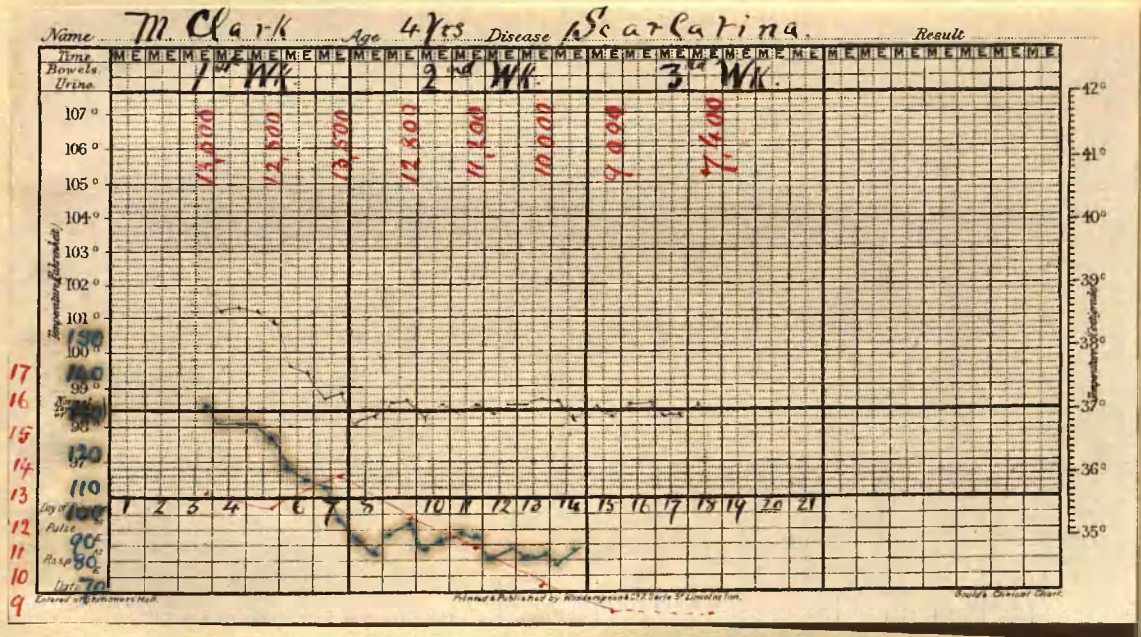 Name M. Clark Age 4 Yrs Disease Scarlatina. Result
Time M E M E M E M E M E M E M E M E M E M E M E M E M E M E M E M E M E M E M E M E M E M E M E M E M E M E M E M E
Bowels.
Urine.
1st WK 2nd WK. 3rd WK.
13,000 12,500 13,500 12 200 11,200 10000 9000 7,400
107° 106° 105° 104° 103° 102° 101° 100° 99° 98° 97°
42° 41° 40° 39° 38° 37° 36° 35°
140 120 110 100 90 80 70
17 16 15 14 13 12 11 10 9
Day of 1 2 3 4 5 6 7 8 9 10 11 12 13 14 15 16 17 18 19 20 21
Pulse
Resp
Date
Entered at Stationers Hall. Printed & Published by Lincolns Inn. Gould's Clinical Chart.